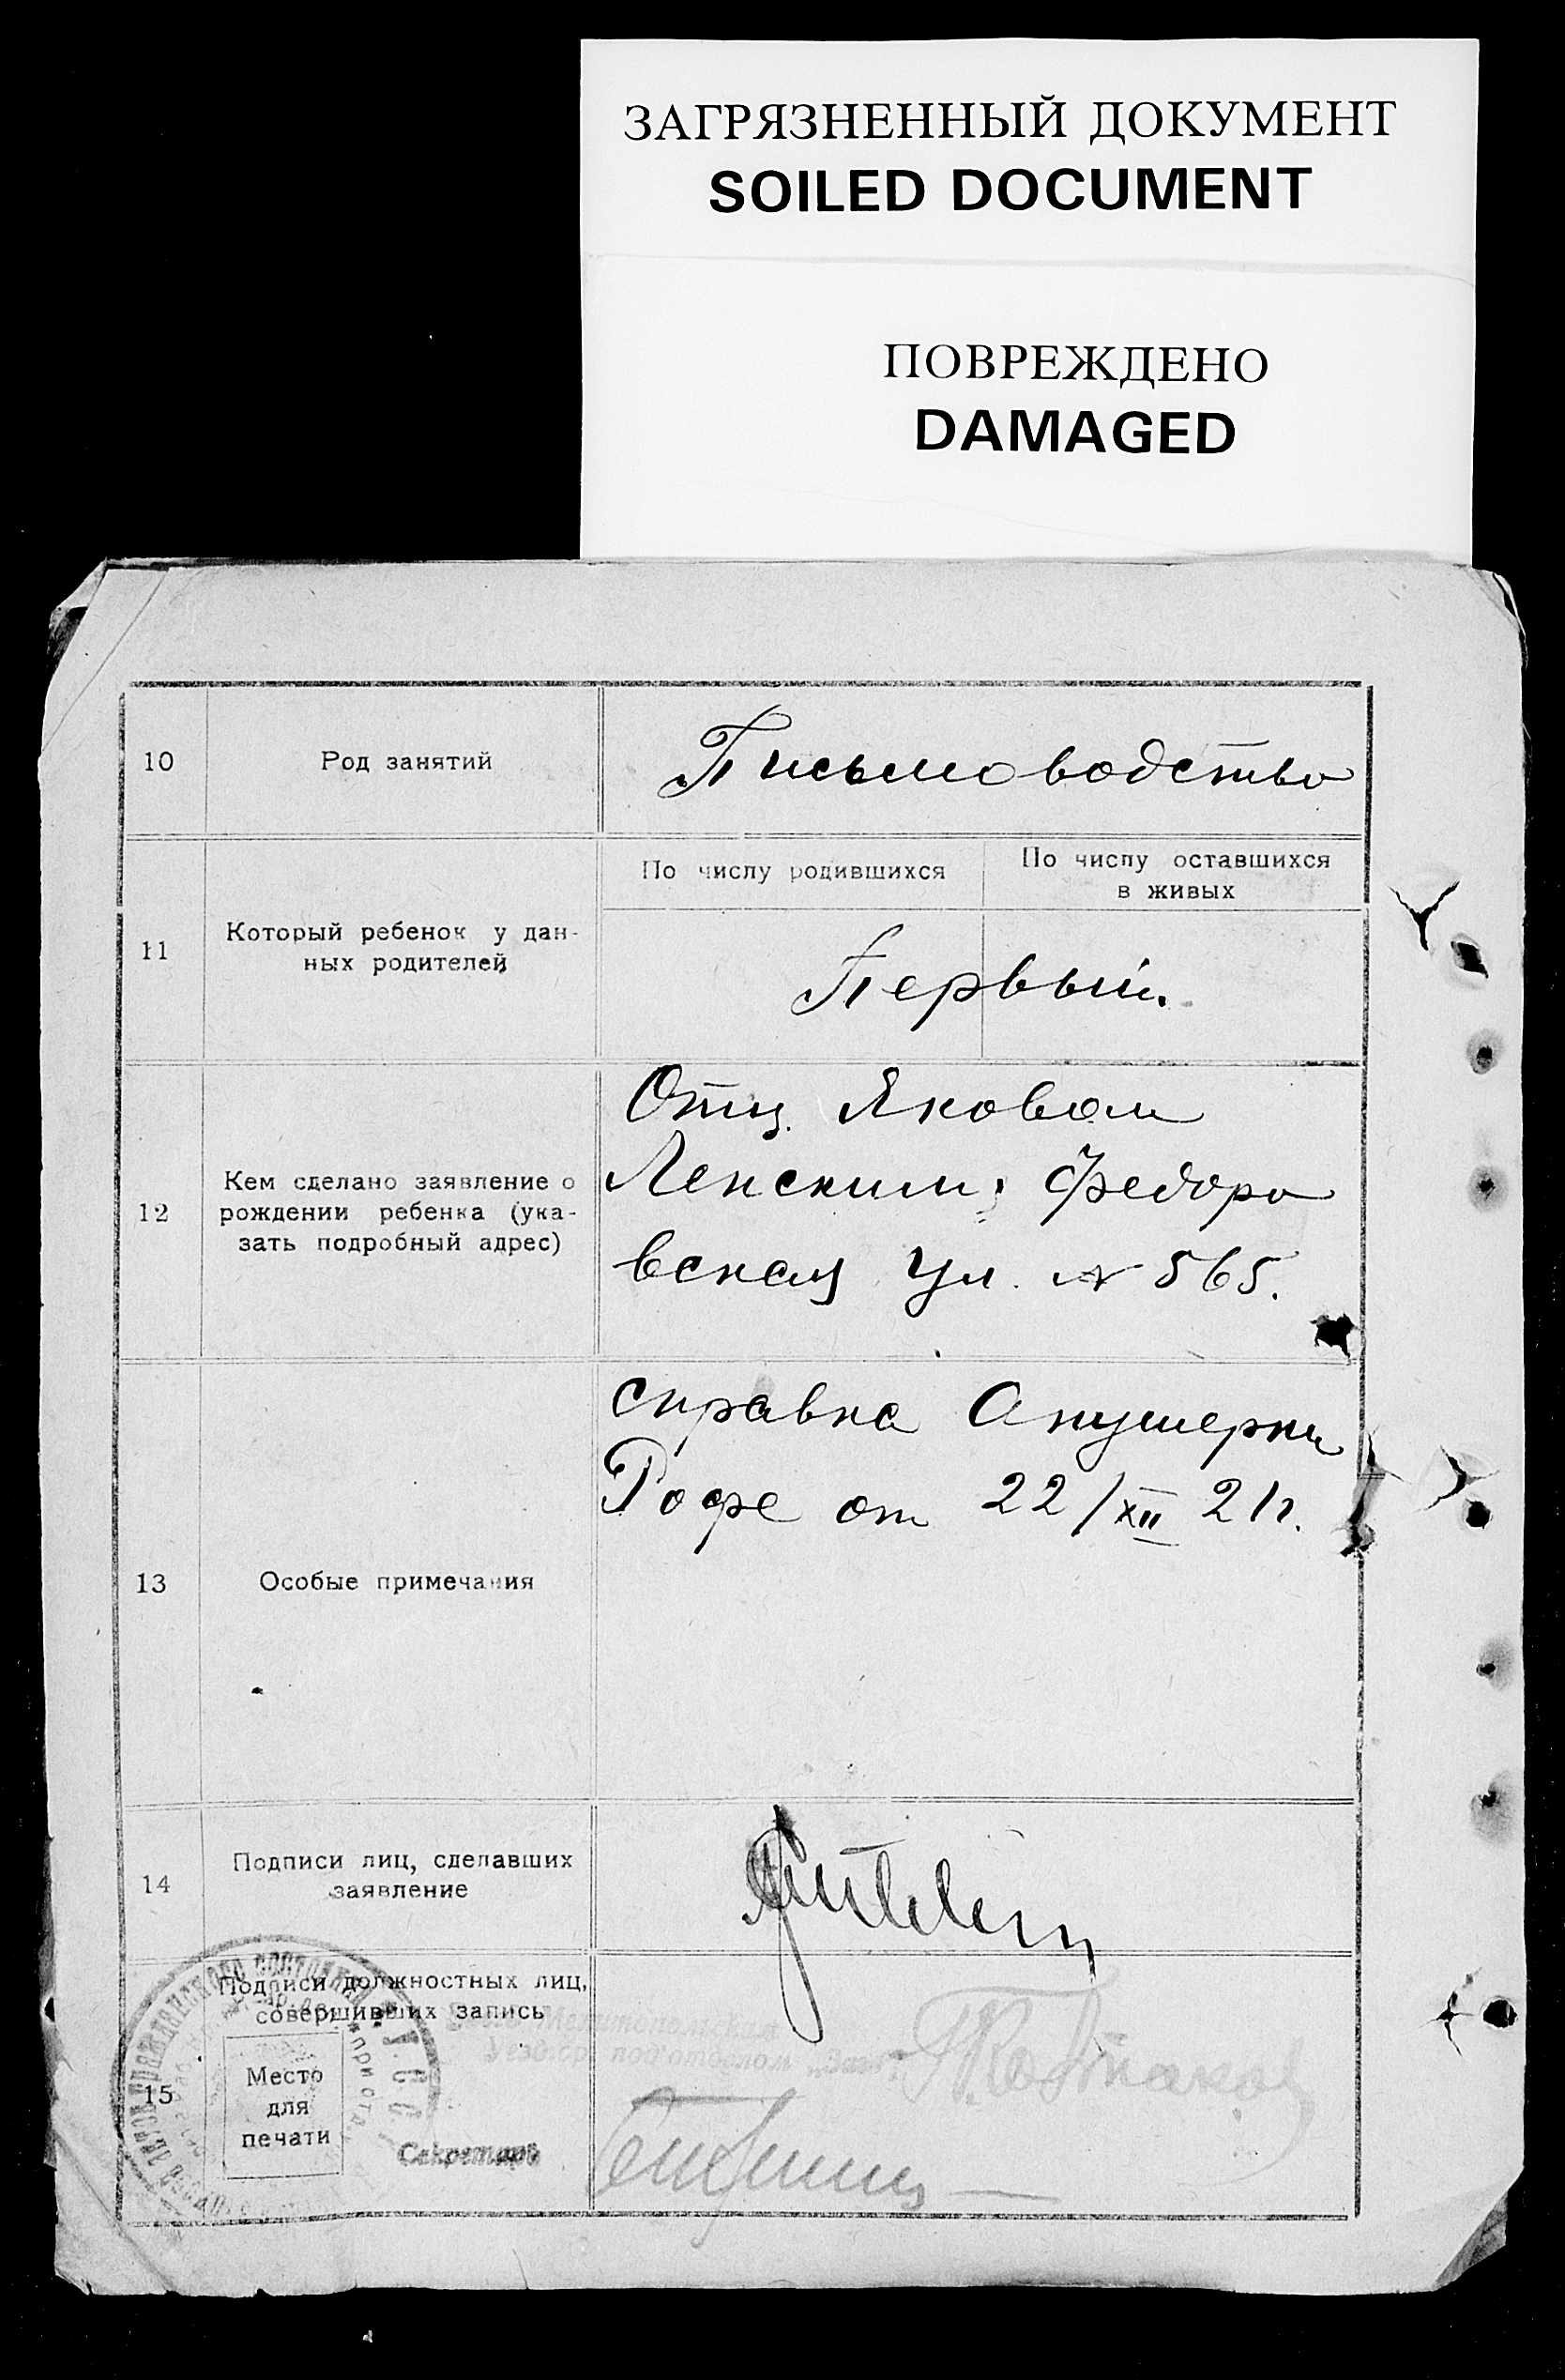 ЗАГРЯЗНЕННЫЙ ДОКУМЕНТ
SOILED DOCUMENT
ПОВРЕЖДЕНО
DAMAGED
10
Род занятий
Письмоводство
11
Который ребенок у дан-
ных родителей
По числу родившихся
По числу оставшихся
в живых
Первый.
12
Кем сделано заявление о
рождении ребенка (ука-
зать подробный адрес)
Отц. Яковом
Ленским; Федоро
вская ул. № 565.
13
Особые примечания
справка Акушерки
Рофе от 22/XII 21г.
14
Подписи лиц, сделавших
заявление
15
Подписи должностных лиц,
совершивших запись
Мелитопольским
под'отделом
Место
для
печати
Секретарь